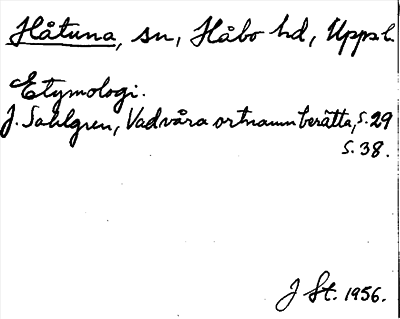 Håtuna, sn, Håbo hd, Uppsl.
Etymologi.
J. Sahlgren, Vad våra ortnamn berätta, s. 29
s. 38.
J St. 1956.